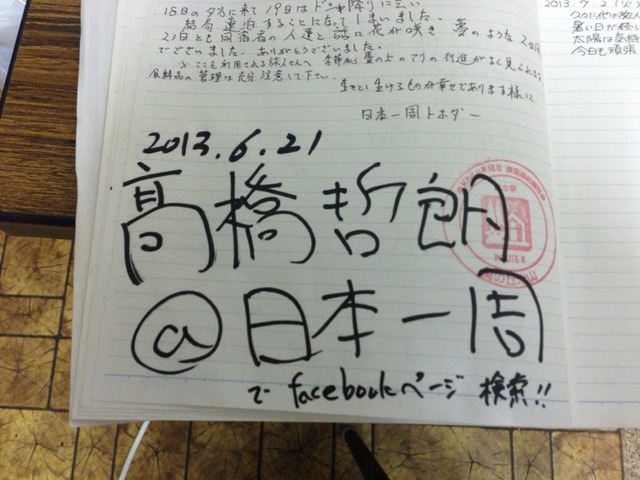 18日の夕方に来て19日はドシャ降りに会い
結局連泊することになってしまいました。
2日とも同宿者の人達と話に花が咲き 夢のような2日間
でございました。ありがとうございました。
※ここを利用される旅人さんへ
アリの行進がよく見られます
食料品の管理は充分注意して下さい。
生きとし生けるもの分幸せであります様に
日本一周トホダー
2013.6.21
髙橋哲朗
@日本一周
で facebookページ 検索!!
2013.7.2(火)
暑い日が続い
太陽は気持
今日も頑張
ROUTE